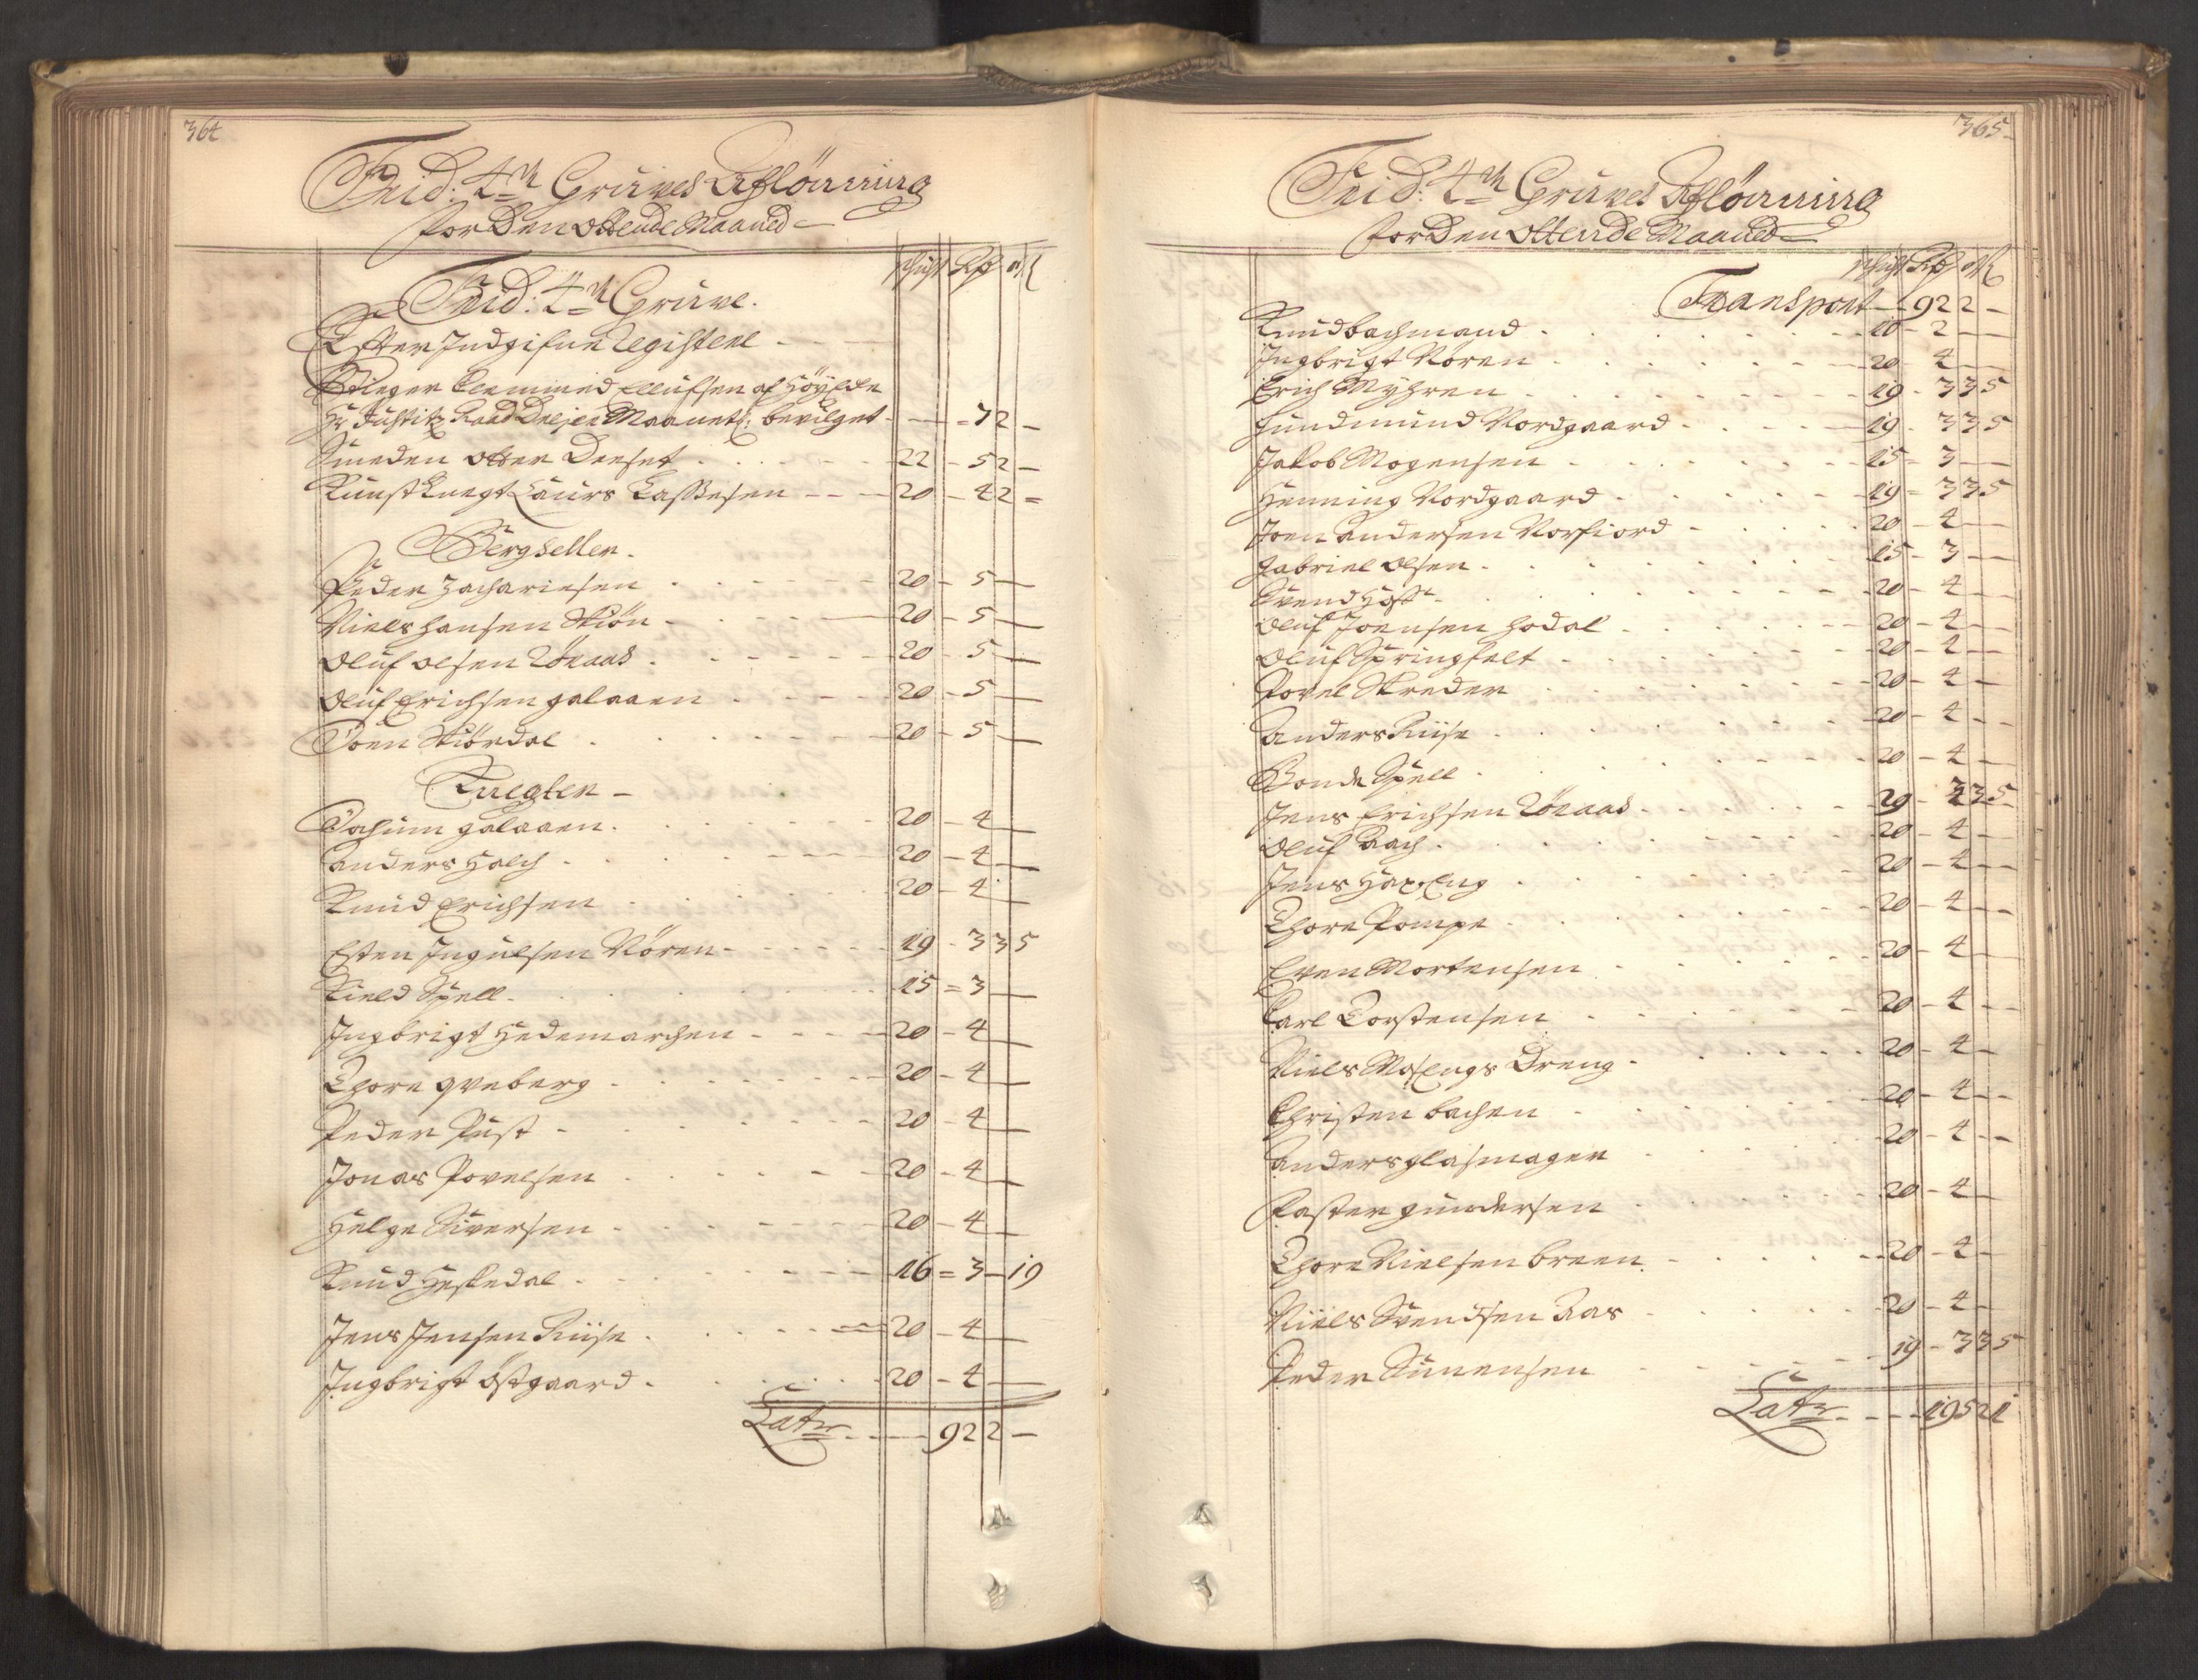 364
Frid: 4de Gruves Afløning
for Den Ottende Maaned
schigt Rdr Ort ß
Frid: 4de Gruve.
Effter Indgifne Registere
Stieger Clemmed Ellufsen af Høyede
Hr. Justitz Raad Drejer Maanetl: bevilget - 7 2 -
Smeden Otter Deeset 22 - 5 2 -
Kunstknegt Laurs Lassesen 20 - 4 2 =
Bergseller.
Peder Zachariesen 20 - 5 -
Niels Hansen Skiön 20 - 5 -
Oluf Olsen Röraas 20 - 5 -
Oluf Erichsen galaaen 20 - 5 -
Joen Stiördal 20 - 5 -
Knegter -
Jochum galaaen 20 - 4 -
Anders Holch 20 - 4 -
Knud Erichsen 20 - 4 -
Esten Ingulsen Nören 19 - 3 3 5
Kield Spell 15 = 3 -
Ingbrigt Hedemarchen 20 - 4 -
Thore qveberg 20 - 4 -
Peder Pust 20 - 4 -
Jonas Povelsen 20 - 4 -
Helge Siversen 20 - 4 -
Knud Heskedal 16 = 3 - 19
Jens Jensen Riise 20 - 4 -
Ingbrigt Östgaard 20 - 4 -
Latr 92 2 -
365
Frid: 4de Gruves Afløning
for Den Ottende Maaned
schigt Rdr Ort ß
Transport 92 2 -
Knud bachmand 10 - 2 -
Ingbrigt Nören 20 - 4 -
Erich Myhren 19 - 3 3 5
Gundmund Nordgaard 19 - 3 3 5
Jakob Mogensen 15 - 3 -
Henning Nordgaard 19 - 3 3 5
Joen Andersen Norfiord 20 - 4 -
Gabriel Olsen 15 - 3 -
Svend Hoff 20 - 4 -
Oluf Joensen hodal 20 - 4 -
Oluf Springfelt 20 - 4 -
Povel Skreder 20 - 4 -
Anders Riise 20 - 4 -
Bonde Spell 20 - 4 -
Jens Erichsen Röraas 19 - 3 3 5
Oluf Aach 20 - 4 -
Jens Hax Eng 20 - 4 -
Thore Pompe 20 - 4 -
Even Mortensen 20 - 4 -
Carl Torstensen 20 - 4 -
Niels Mosengs Dreng 20 - 4 -
Christen bachen 20 - 4 -
Anders glasmager 20 - 4 -
Casten gundersen 20 - 4 -
Thore Nielsen breen 20 - 4 -
Niels Svendsen Aas 20 - 4 -
Peder Simensen 19 - 3 3 5
Latr 195 2 1